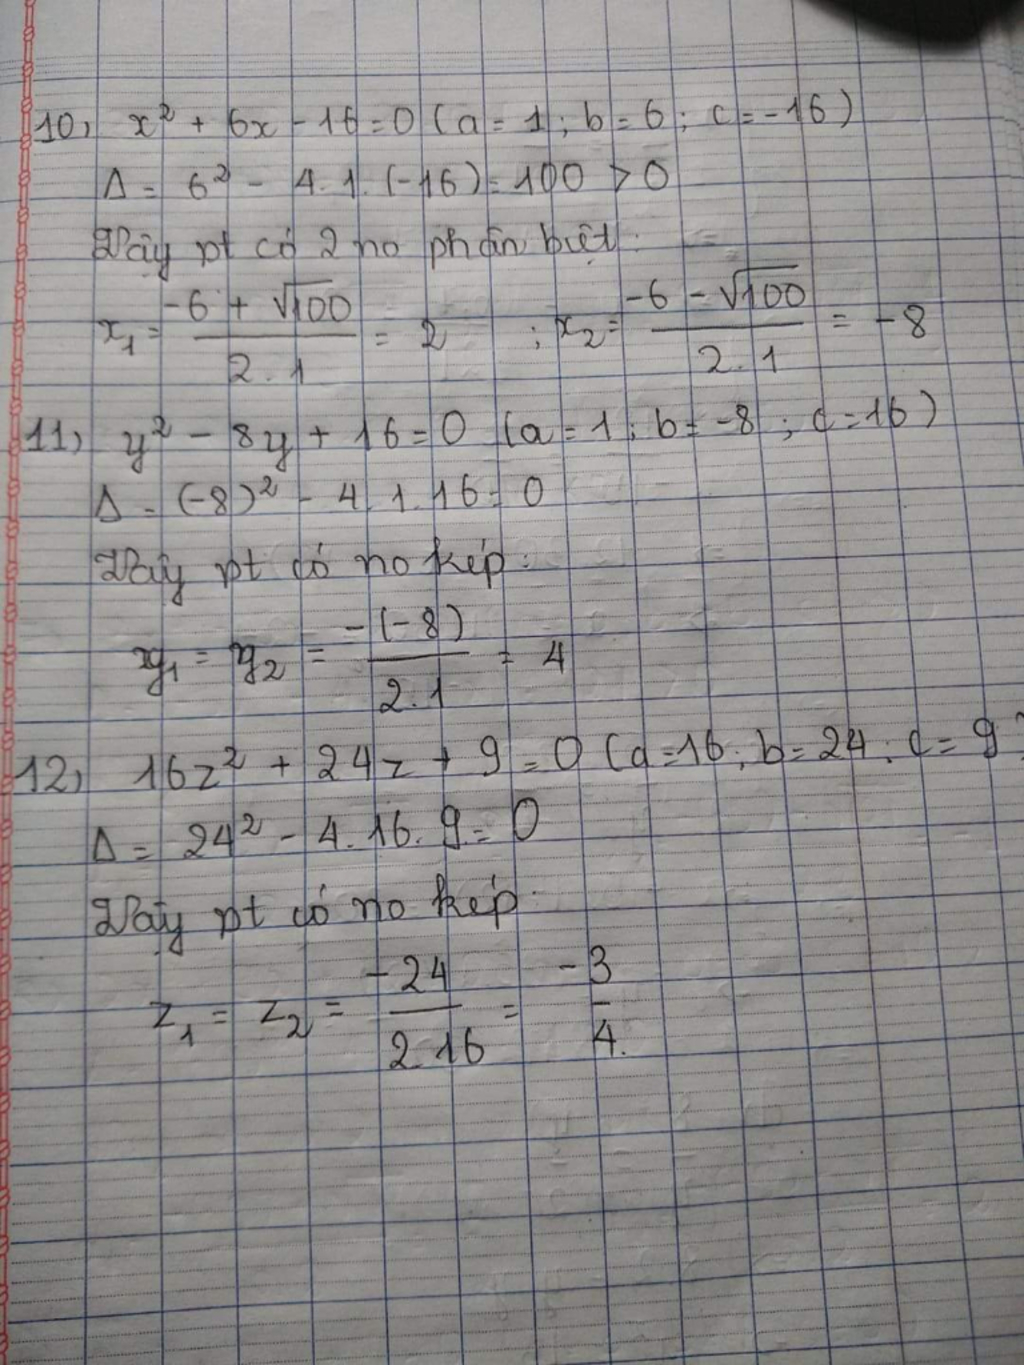 10) x² + 6x - 16 = 0 (a = 1 ; b = 6 ; c = -16)
Δ = 6² - 4.1.(-16) = 100 > 0
Vậy pt có 2 no phân biệt:
x₁ = (-6 + √100)/(2.1) = 2 ; x₂ = (-6 - √100)/(2.1) = -8
11) y² - 8y + 16 = 0 (a = 1 ; b = -8 ; c = 16)
Δ = (-8)² - 4.1.16 = 0
Vậy pt có no kép:
y₁ = y₂ = -(-8)/(2.1) = 4
12) 16z² + 24z + 9 = 0 (a = 16 ; b = 24 ; c = 9)
Δ = 24² - 4.16.9 = 0
Vậy pt có no kép:
z₁ = z₂ = -24/(2.16) = -3/4.